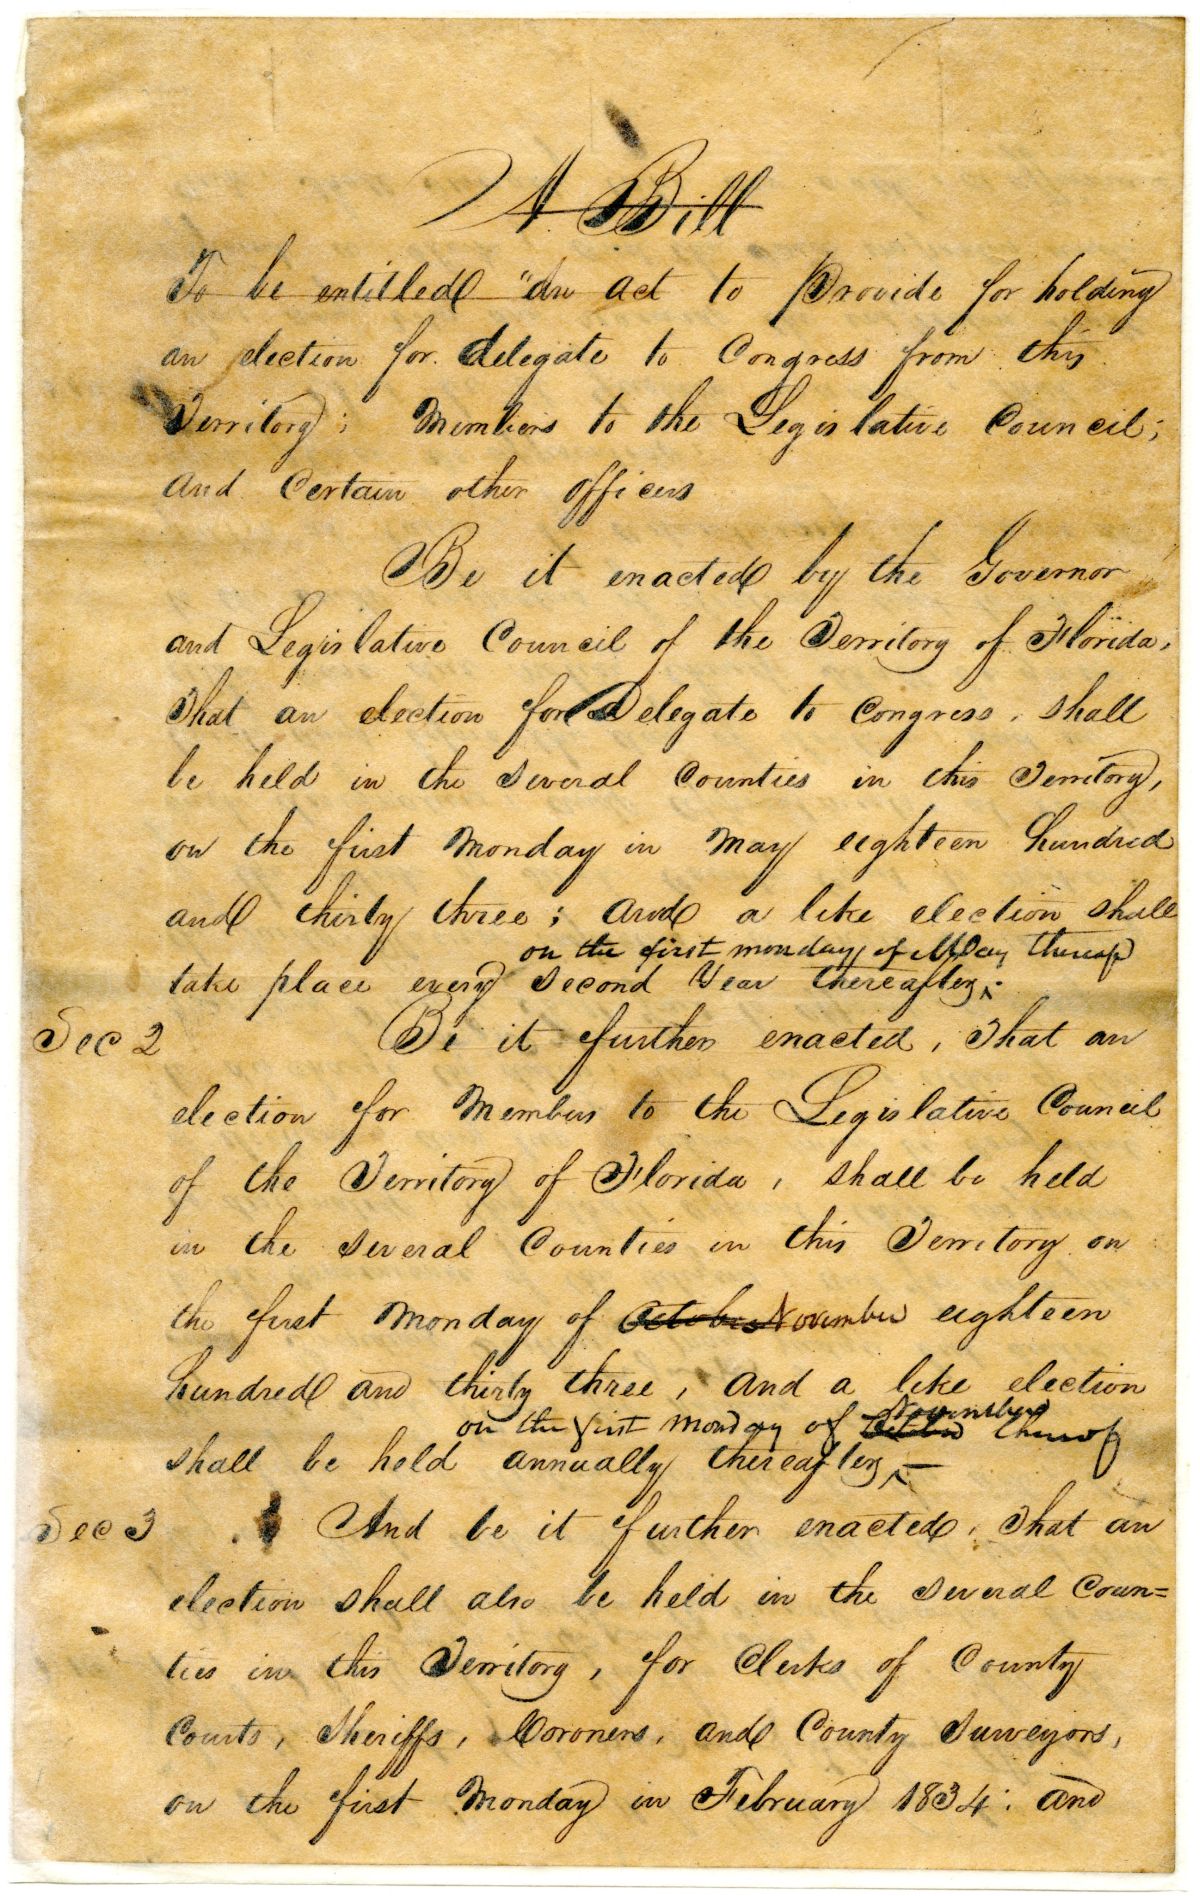 A Bill
To be entitled "An act to Provide for holding
an election for delegate to Congress from this
Territory; Members to the Legislative Council;
and Certain other officers
Be it enacted by the Governor
and Legislative Council of the Territory of Florida,
That an election for Delegate to Congress, shall
be held in the several Counties in this Territory,
on the first Monday in May eighteen hundred
and thirty three; and a like election shall
on the first monday of May thereof
take place every second Year thereafter,
Sec 2 Be it further enacted, That an
election for Members to the Legislative Council
of the Territory of Florida, shall be held
in the several Counties in this Territory on
the first Monday of October November eighteen
hundred and thirty three, and a like election
November
on the first Monday of October thereof
shall be held annually thereafter, —
Sec 3 And be it further enacted, That an
election shall also be held in the several Coun=
ties in this Territory, for Clerks of County
Courts, Sheriffs, Coroners, and County Surveyors,
on the first Monday in February 1834: and